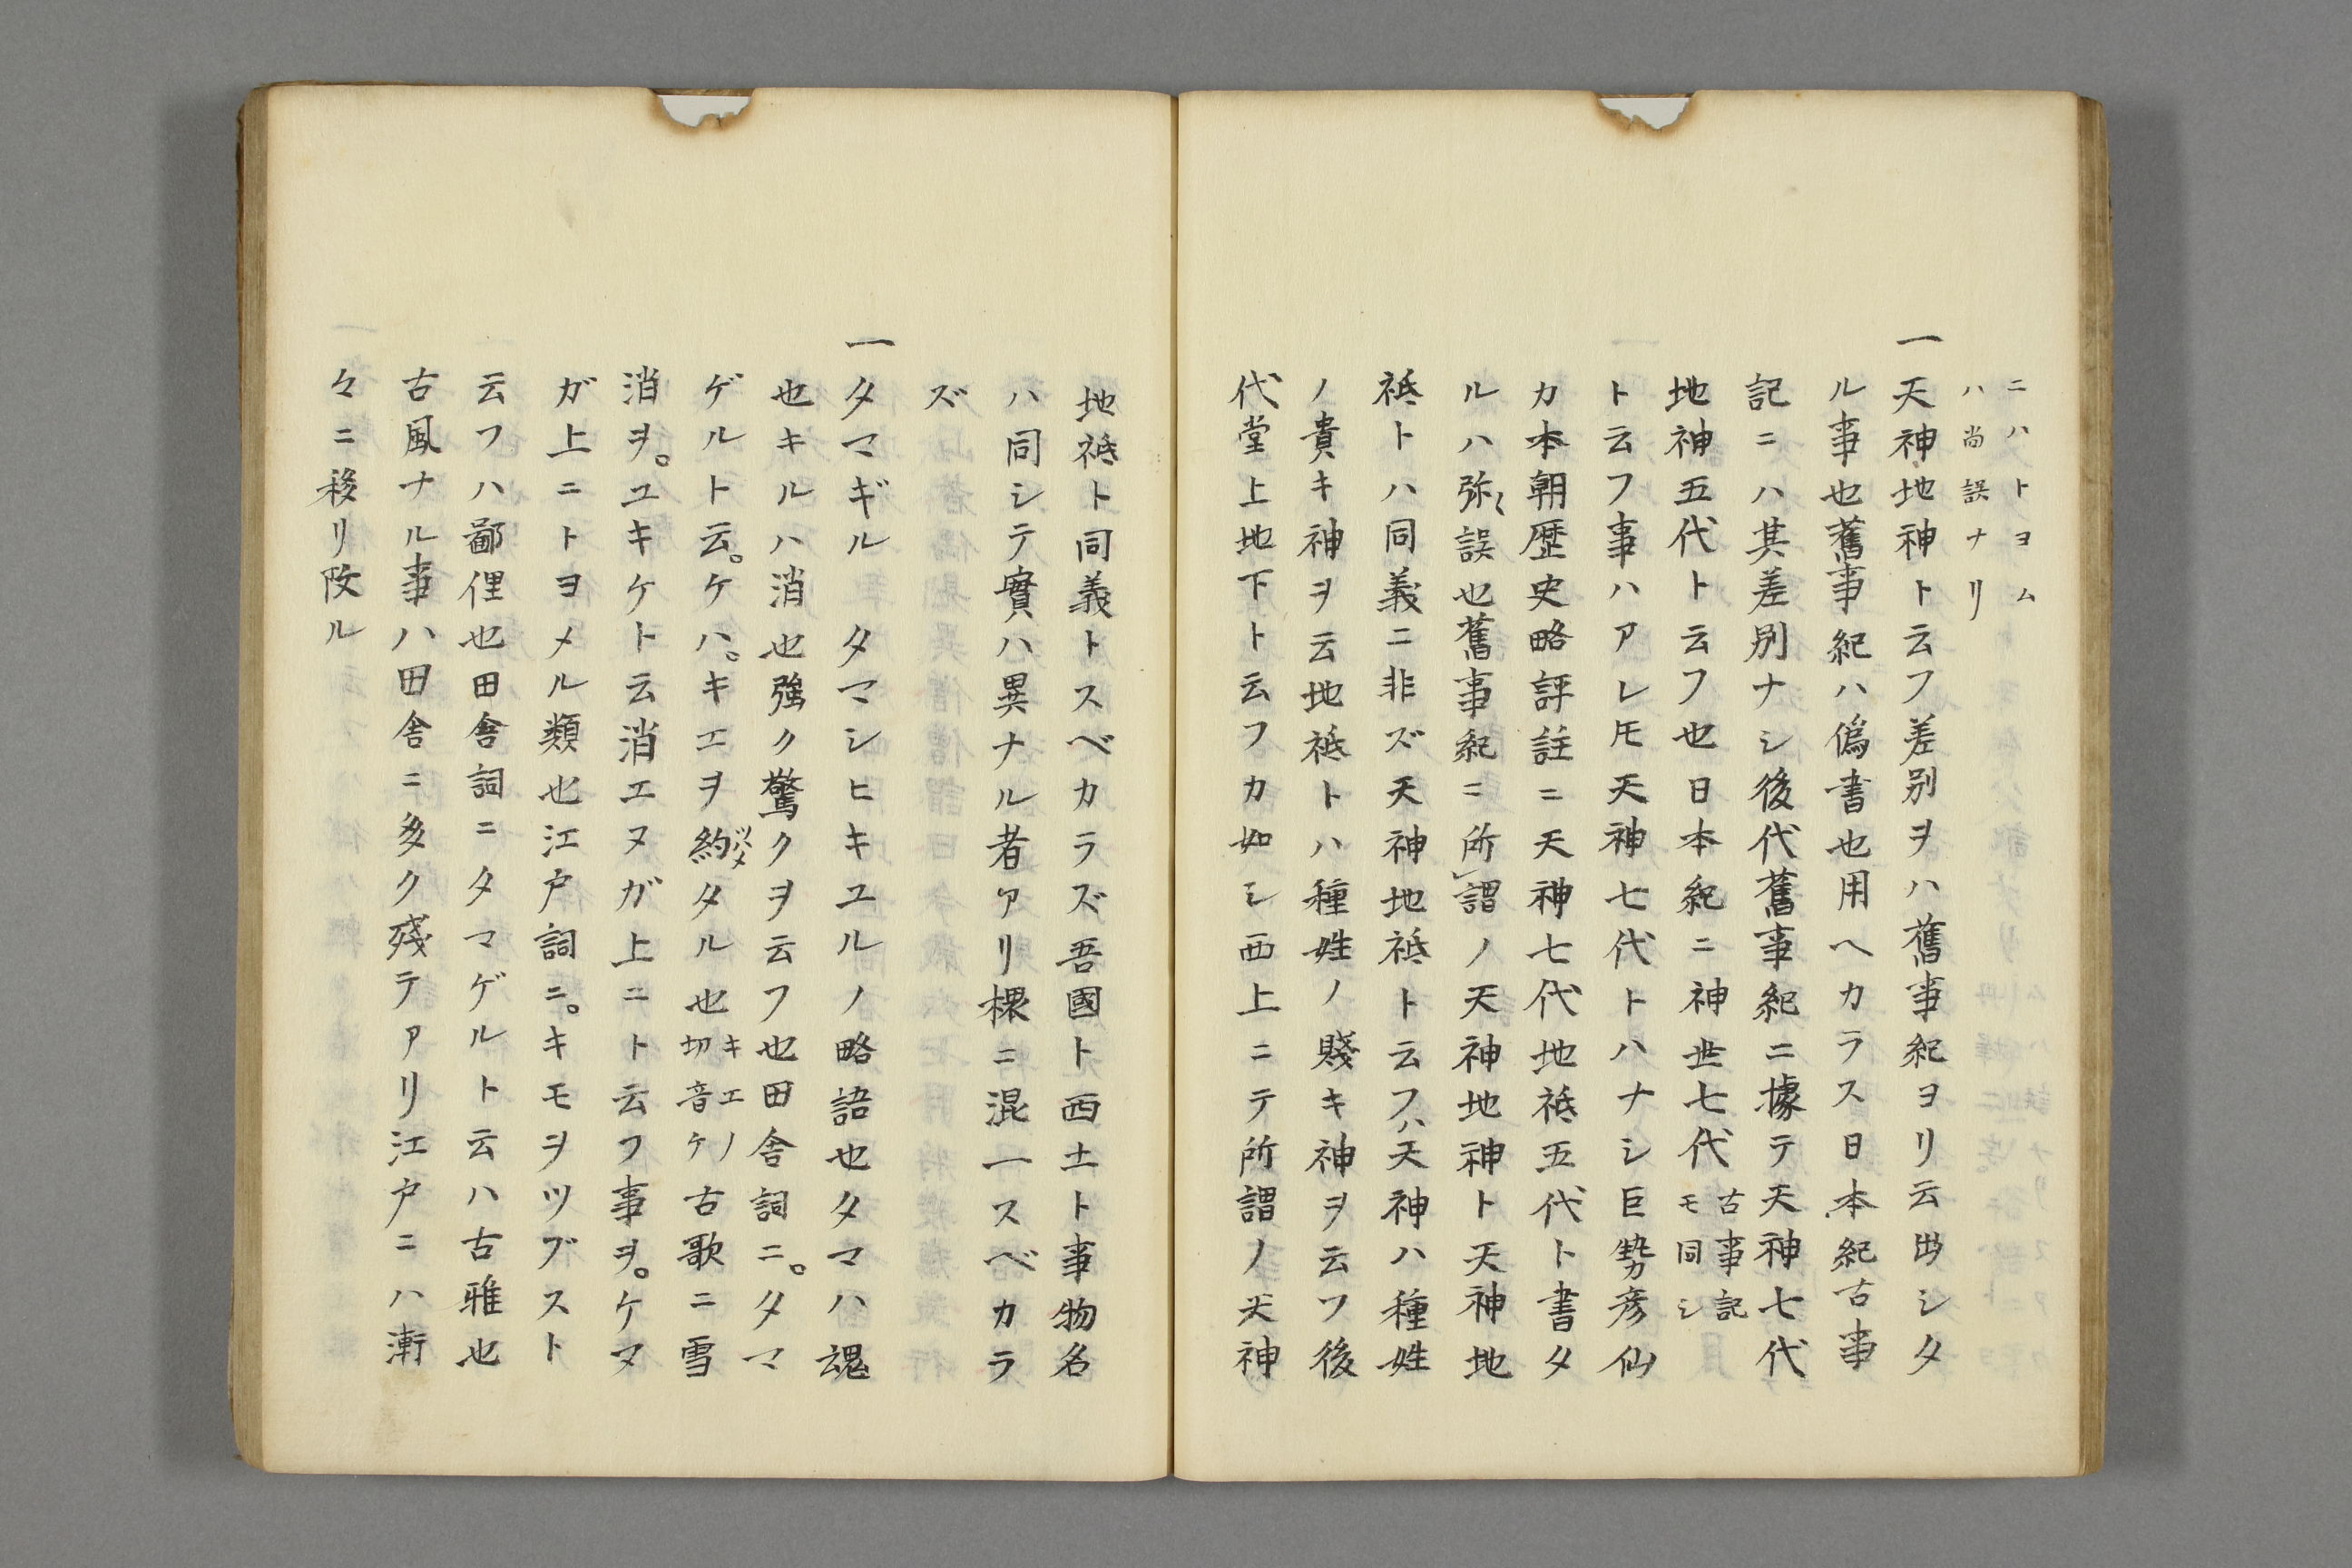 ニハトヨム
ハ尚誤ナリ
一天神地神ト云フ差別ヲハ舊事紀ヨリ云出シタ
ル事也舊事紀ハ偽書也用ヘカラス日本紀古事
記ニハ其差別ナシ後代舊事紀ニ據テ天神七代
地神五代ト云フ也日本紀ニ神世七代古事記モ同シ
ト云フ事ハアレ𪜈天神七代トハナシ巨勢彦仙
カ本朝歴史略評註ニ天神七代地祇五代ト書タ
ルハ弥〻誤也舊事紀ニ所謂ノ天神地神ト天神地
祇トハ同義ニ非ズ天神地祇ト云フハ天神ハ種姓
ノ貴キ神ヲ云地祇トハ種姓ノ賤キ神ヲ云フ後
代堂上地下ト云フカ如シ西上ニテ所謂ノ天神
地祇ト同義トスベカラズ吾國ト西土ト事物名
ハ同シテ實ハ異ナル者アリ概ニ混一スベカラ
ズ
一タマギル タマシヒキユルノ略語也タマハ魂
也キルハ消也強ク驚クヲ云フ也田舎詞ニ。タマ
ゲルト云。ケハ。キエヲ約ツヾメタル也キエノ切音ケ古歌ニ雪
消ヲ。ユキケト云消エヌガ上ニト云フ事ヲ。ケヌ
ガ上ニトヨメル類也江戸詞ニ。キモヲツブスト
云フハ鄙俚也田舎詞ニタマゲルト云ハ古雅也
古風ナル事ハ田舎ニ多ク残テアリ江戸ニハ漸
々ニ移リ改ル